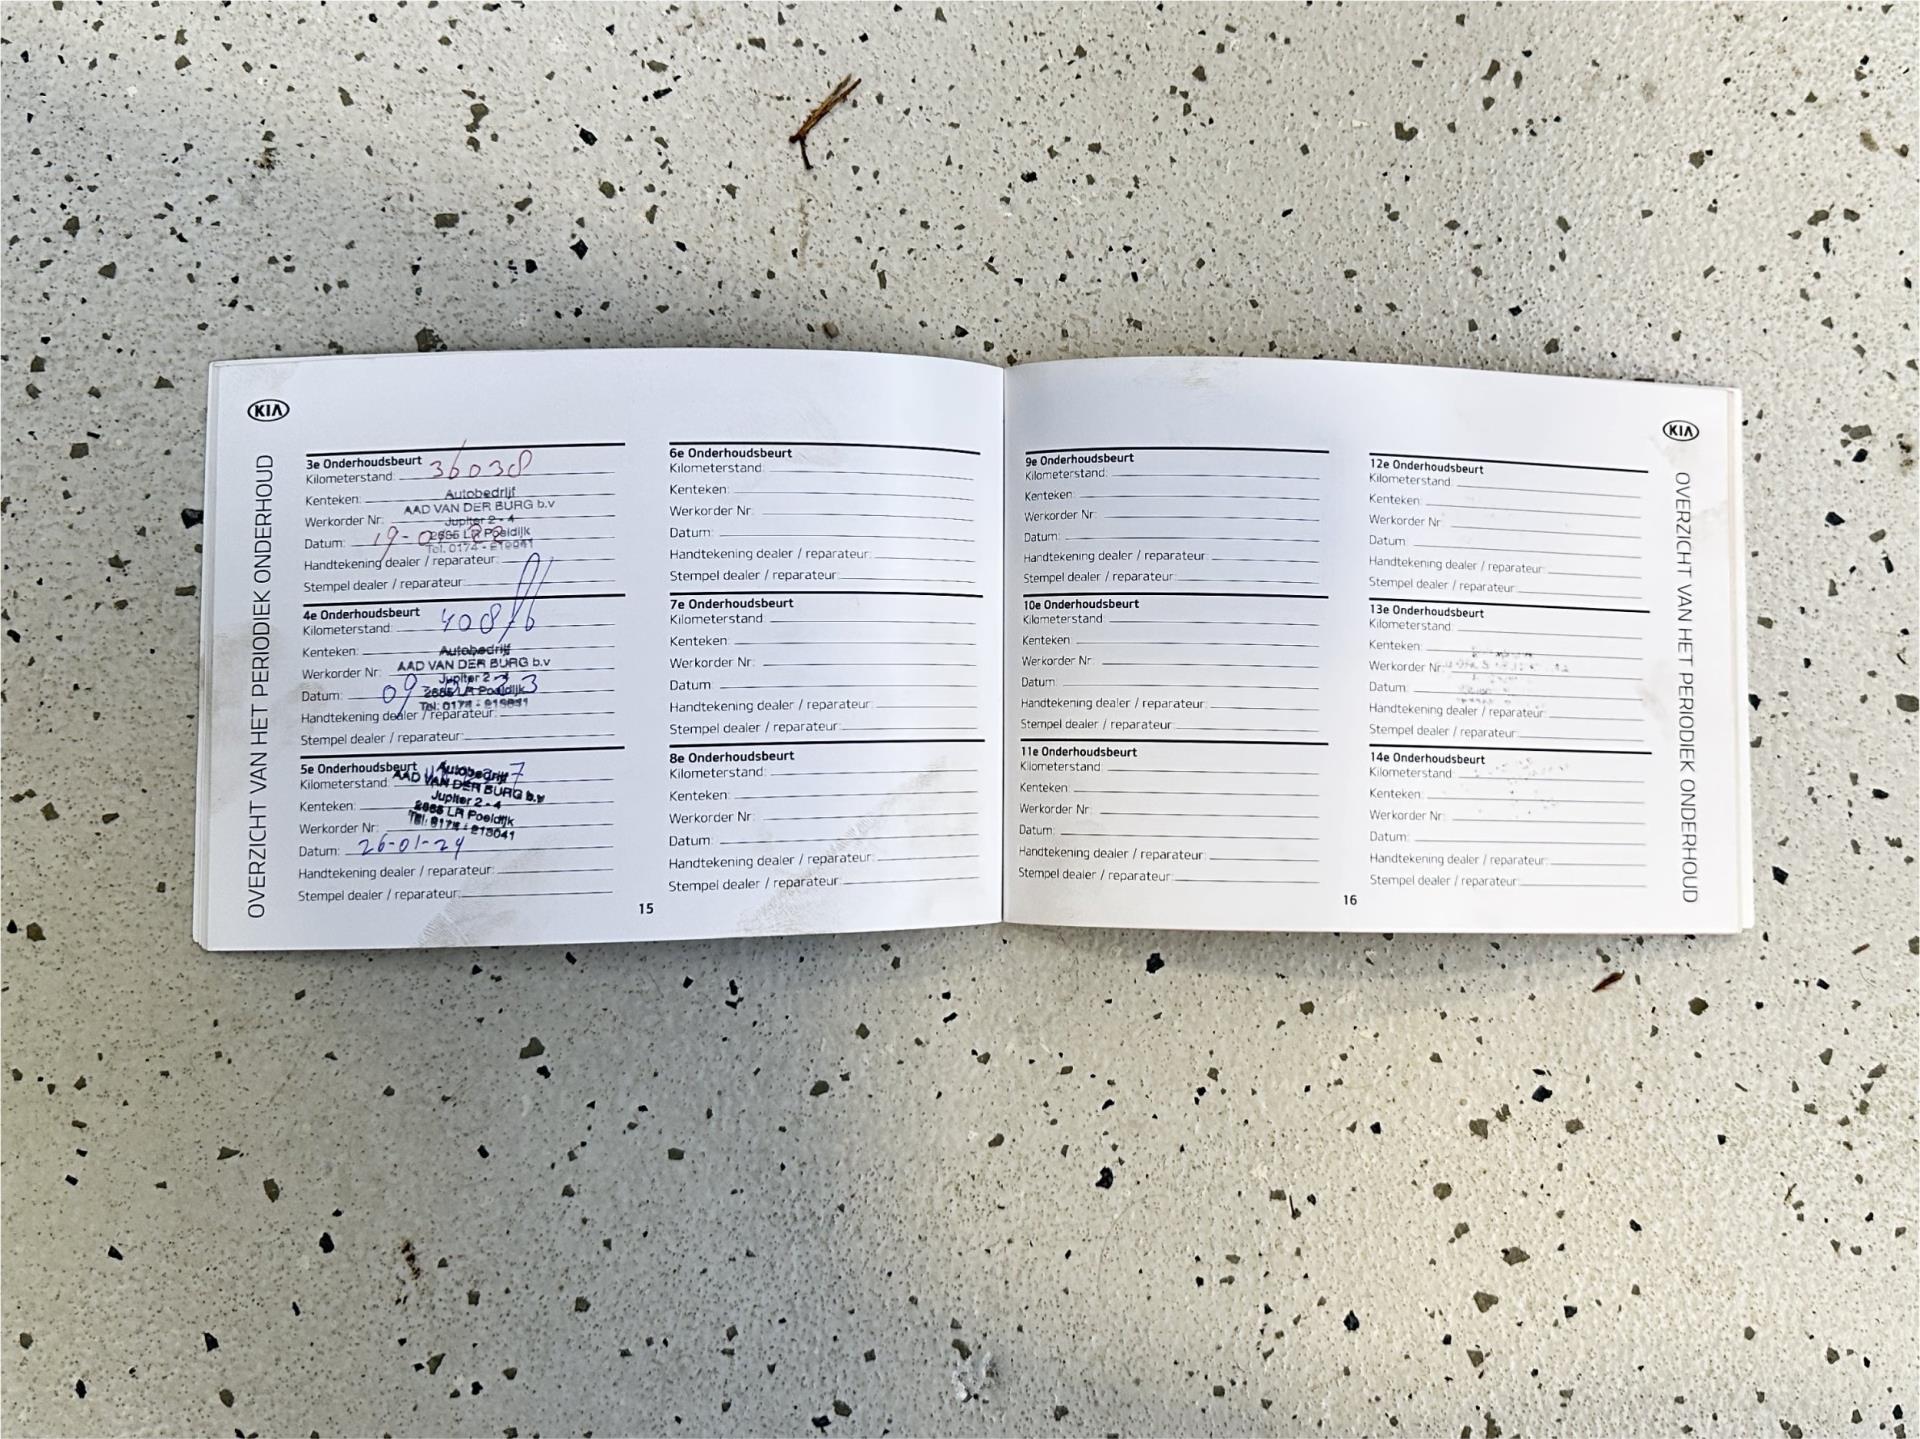 KIA
OVERZICHT VAN HET PERIODIEK ONDERHOUD
3e Onderhoudsbeurt
Kilometerstand: 36038
Kenteken:
Autobedrijf
AAD VAN DER BURG b.v
Werkorder Nr:
Jupiter 2 - 4
2685 LR Poeldijk
Datum: 19-
Tel. 0174 -
Handtekening dealer / reparateur:
Stempel dealer / reparateur:
4e Onderhoudsbeurt
Kilometerstand:
Kenteken:
Autobedrijf
AAD VAN DER BURG b.v
Werkorder Nr:
Jupiter 2 - 4
2685 LR Poeldijk
Datum: 09-
Tel: 0174 -
Handtekening dealer / reparateur:
Stempel dealer / reparateur:
5e Onderhoudsbeurt
Kilometerstand:
Autobedrijf
AAD VAN DER BURG b.v
Jupiter 2 - 4
Kenteken:
2685 LR Poeldijk
Werkorder Nr:
Datum: 26-01-24
Handtekening dealer / reparateur:
Stempel dealer / reparateur:
6e Onderhoudsbeurt
Kilometerstand:
Kenteken:
Werkorder Nr:
Datum:
Handtekening dealer / reparateur:
Stempel dealer / reparateur:
7e Onderhoudsbeurt
Kilometerstand:
Kenteken:
Werkorder Nr:
Datum:
Handtekening dealer / reparateur:
Stempel dealer / reparateur:
8e Onderhoudsbeurt
Kilometerstand:
Kenteken:
Werkorder Nr:
Datum:
Handtekening dealer / reparateur:
Stempel dealer / reparateur:
15
9e Onderhoudsbeurt
Kilometerstand:
Kenteken:
Werkorder Nr:
Datum:
Handtekening dealer / reparateur:
Stempel dealer / reparateur:
10e Onderhoudsbeurt
Kilometerstand:
Kenteken:
Werkorder Nr:
Datum:
Handtekening dealer / reparateur:
Stempel dealer / reparateur:
11e Onderhoudsbeurt
Kilometerstand:
Kenteken:
Werkorder Nr:
Datum:
Handtekening dealer / reparateur:
Stempel dealer / reparateur:
12e Onderhoudsbeurt
Kilometerstand:
Kenteken:
Werkorder Nr:
Datum:
Handtekening dealer / reparateur:
Stempel dealer / reparateur:
13e Onderhoudsbeurt
Kilometerstand:
Kenteken:
Werkorder Nr:
Datum:
Handtekening dealer / reparateur:
Stempel dealer / reparateur:
14e Onderhoudsbeurt
Kilometerstand:
Kenteken:
Werkorder Nr:
Datum:
Handtekening dealer / reparateur:
Stempel dealer / reparateur:
16
KIA
OVERZICHT VAN HET PERIODIEK ONDERHOUD